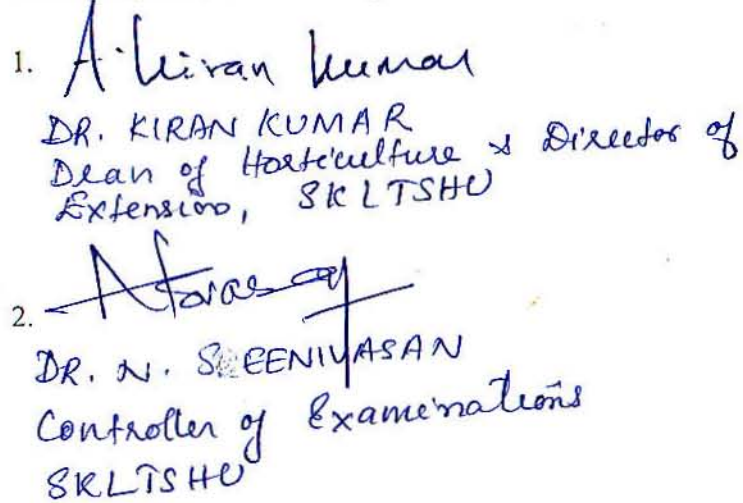 1. A. Kiran Kumar
DR. KIRAN KUMAR
Dean of Horticulture & Director of
Extension, SKLTSHU
2.
DR. N. SREENIVASAN
Controller of Examinations
SKLTSHU